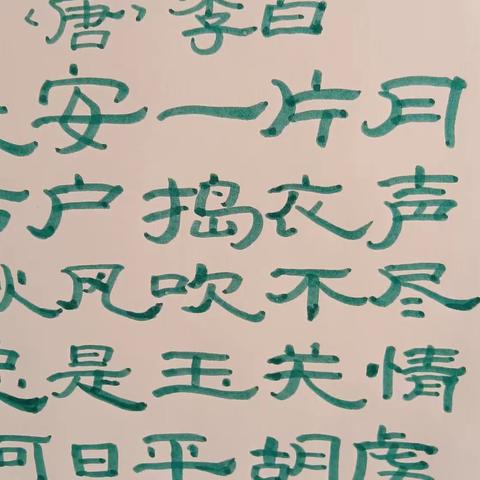 <唐> 李白
长安一片月
万户捣衣声
秋风吹不尽
总是玉关情
何日平胡虏